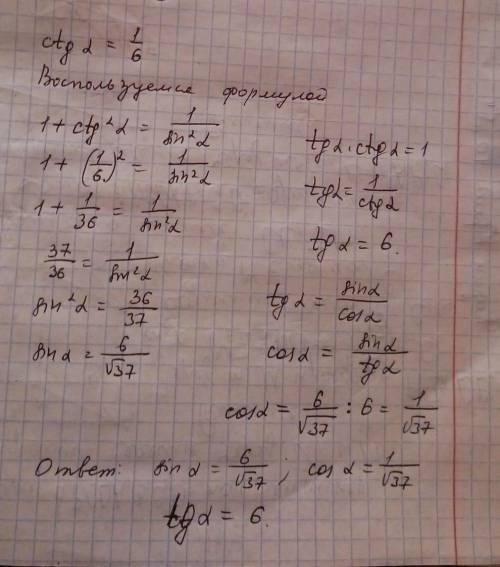 ctg α = 1/6
Воспользуемся формулой
1 + ctg²α = 1/sin²α
1 + (1/6)² = 1/sin²α
1 + 1/36 = 1/sin²α
37/36 = 1/sin²α
sin²α = 36/37
sin α = 6/√37
tg α · ctg α = 1
tg α = 1/ctg α
tg α = 6.
tg α = sin α/cos α
cos α = sin α/tg α
cos α = 6/√37 : 6 = 1/√37
Ответ: sin α = 6/√37 ; cos α = 1/√37
tg α = 6.